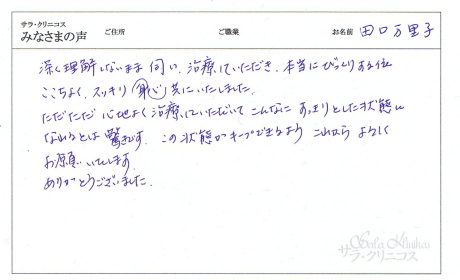 サラ・クリニコス
みなさまの声
ご住所
ご職業
お名前 田口万里子
深く理解しないまま伺い、治療していただき、本当にびっくりする位
ここちよく、スッキリ 身心共にいたしました。
ただただ 心地よく治療していただいて こんなに すっきりとした状態に
なれるとは 驚きです。この状態がキープできるよう これから よろしく
お願いいたします。
ありがとうございました。
Sala Klinikos
サラ・クリニコス